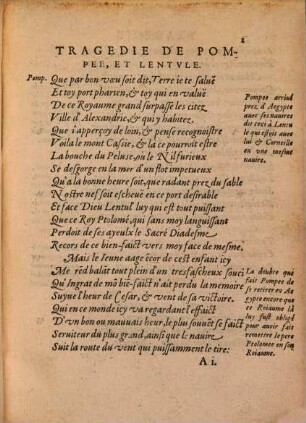 2
TRAGEDIE DE POM-
PEE, ET LENTVLE.
Pomp. Que par bon vœu soit dit, Terre ie te saluë
Et toy port pharien, & toy qui en valuë
De ce Royaume grand surpasse les citez
Ville d'Alexandrie, & qui y habitez.
Que i'apperçoy de loin, & pense recognoistre
Voila le mont Casie, & la ce pourroit estre
La bouche du Peluse, ou le Nil furieux
Se desgorge en la mer d'un flot impetueux
Qu'à la bonne heure soit, que radant prez du sable
Nostre nef soit escheuë en ce port desirable
Et face Dieu Lentul luy qui est tout puissant
Que ce Roy Ptolomé, qui sans moy languissant
Perdoit de ses ayeulx le Sacré Diadesme
Recors de ce bien-faict vers moy face de mesme.
Mais le Ieune aage ecor de cest enfant icy
Me rẽd balãt tout plein d'un tresfascheux souci
Qu'ingrat de mõ biẽ-faict n'ait perdu la memoire
Suyue l'heur de Cesar, & vent de sa victoire.
Qui en ce monde icy va regardant l'effaict
D'vn bon ou mauuais heur, le plus souuẽt se faict
Seruiteur du plus grand, ainsi que l. nauire
Suit la route du vent qui puissamment le tire:
Pompee arriué
prez d'Aegypte
auec ses nauires
dit ces à Lentu
le qui estois auec
luy & Corneille
en vne mesme
nauire.
La doubte qui
fait Pompee de
se retirer en Ae
gypte encore que
ce Roiaume là
luy fust obligé
pour auoir fait
remettre le pere
Ptolomee en son
Roiaume.
A i.